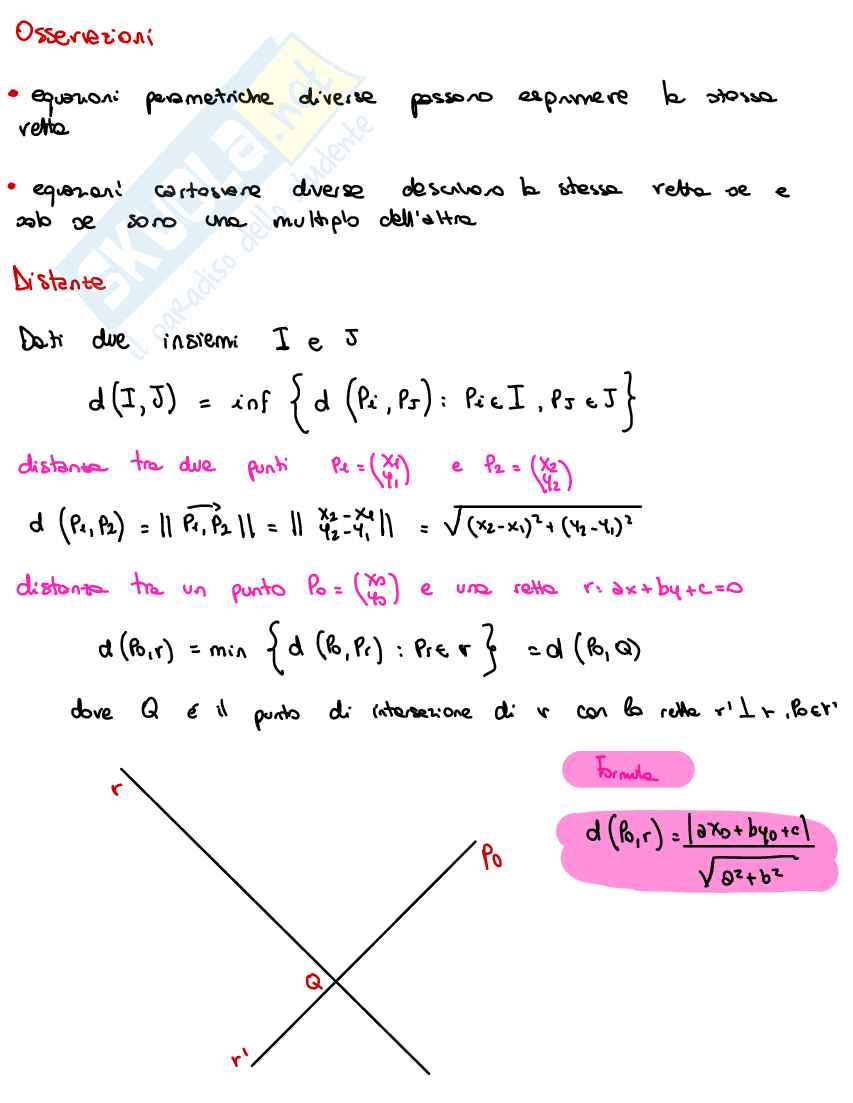 Osservazioni
• equazioni parametriche diverse possono esprimere la stessa
retta
• equazioni cartesiane diverse descrivono la stessa retta se e
solo se sono una multiplo dell'altra
Distante
Dati due insiemi I e J
d(I,J) = inf { d (Pi, PJ): Pi ∈ I, PJ ∈ J }
distanza tra due punti P1 = (x1 y1) e P2 = (x2 y2)
d (P1, P2) = || P1, P2 || = || x2-x1 y2-y1 || = √(x2-x1)² + (y2-y1)²
distanza tra un punto P0 = (x0 y0) e una retta r: ax+by+c=0
d (P0,r) = min { d (P0, Pr) : Pr ∈ r } = d (P0, Q)
dove Q é il punto di intersezione di r con la retta r' ⊥ r, P0 ∈ r'
Formula
d (P0,r) = |ax0+by0+c| / √a²+b²
r
P0
Q
r'
SKUOLA.net
il paradiso dello studente